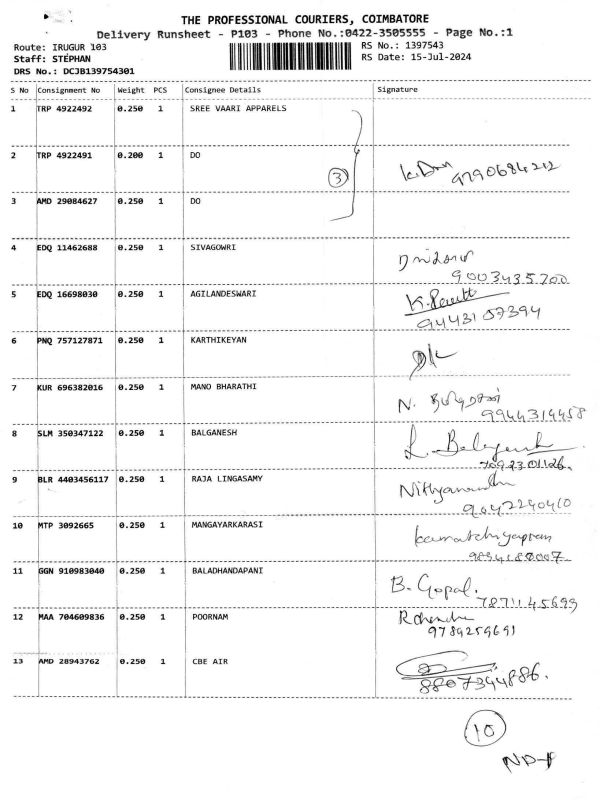 THE PROFESSIONAL COURIERS, COIMBATORE
Delivery Runsheet - P103 - Phone No.:0422-3505555 - Page No.:1
Route: IRUGUR 103
RS No.: 1397543
Staff: STEPHAN
RS Date: 15-Jul-2024
DRS No.: DCJB139754301
S No Consignment No Weight PCS Consignee Details Signature
1 TRP 4922492 0.250 1 SREE VAARI APPARELS
2 TRP 4922491 0.200 1 DO
9790684212
3
3 AMD 29084627 0.250 1 DO
4 EDQ 11462688 0.250 1 SIVAGOWRI
9003435200
5 EDQ 16698030 0.250 1 AGILANDESWARI
9443157394
6 PNQ 757127871 0.250 1 KARTHIKEYAN
7 KUR 696382016 0.250 1 MANO BHARATHI
N.
9944314458
8 SLM 350347122 0.250 1 BALGANESH
L. Balaganesh
7092301126.
9 BLR 4403456117 0.250 1 RAJA LINGASAMY
Nithyanandhi
9042240410
10 MTP 3092665 0.250 1 MANGAYARKARASI
9894188007
11 GGN 910983040 0.250 1 BALADHANDAPANI
B. Gopal.
7871145699
12 MAA 704609836 0.250 1 POORNAM
9789259691
13 AMD 28943762 0.250 1 CBE AIR
8807344886.
10
ND-1